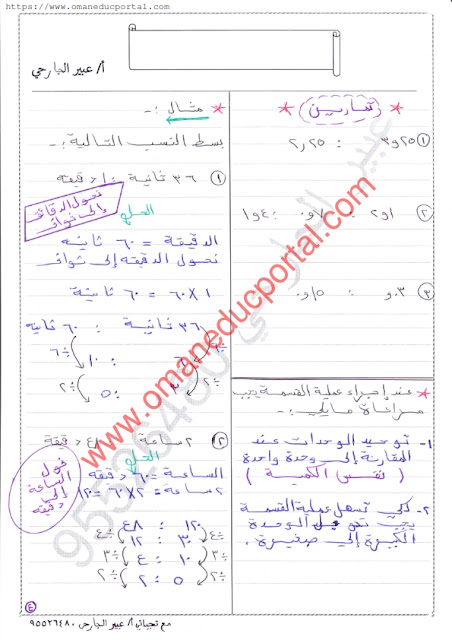 https://www.omaneducportal.com
أ/ عبير الجارحي
* تمارين *
① ٣٫٢٥ : ٢٫٢٥
② ٢٫١ : ٠٫٧ : ١٫٤
③ ٠٫٣ : ٠٫١٥
* عند إجراء عملية القسمة يجب
مراعاة مايلي :-
١- توحيد الوحدات عند
المقارنة إلى وحدة واحدة
( نفس الكمية )
٢- لكي تسهل عملية القسمة
يجب تحويل الوحدة
الكبيرة إلى صغيرة .
* مثال :-
بسط النسب التالية :-
① ٣٦ ثانية : ١ دقيقه
نحول الدقائق
إلى ثواني
الحلو
الدقيقة = ٦٠ ثانيه
نحول الدقيقه إلى ثواني
١ × ٦٠ = ٦٠ ثانية
٣٦ ثانية : ٦٠ ثانيه
÷٦ ٦ : ١٠ ÷٦
÷٢ ٣ : ٥ ÷٢
② ٢ ساعة : ٤٨ دقيقة
الحلو
الساعة = ٦٠ دقيقه
٢ ساعة = ٢ × ٦٠ = ١٢٠
حول
الساعة
إلى
دقيقه
١٢٠ : ٤٨
÷٤ ٣٠ : ١٢ ÷٤
÷٣ ١٠ : ٤ ÷٣
÷٢ ٥ : ٢ ÷٢
٤
مع تحياتي أ/ عبير الجارحي ٩٥٥٢٦٤٨٠
www.omaneducportal.com
عبير الجارحي 95526480